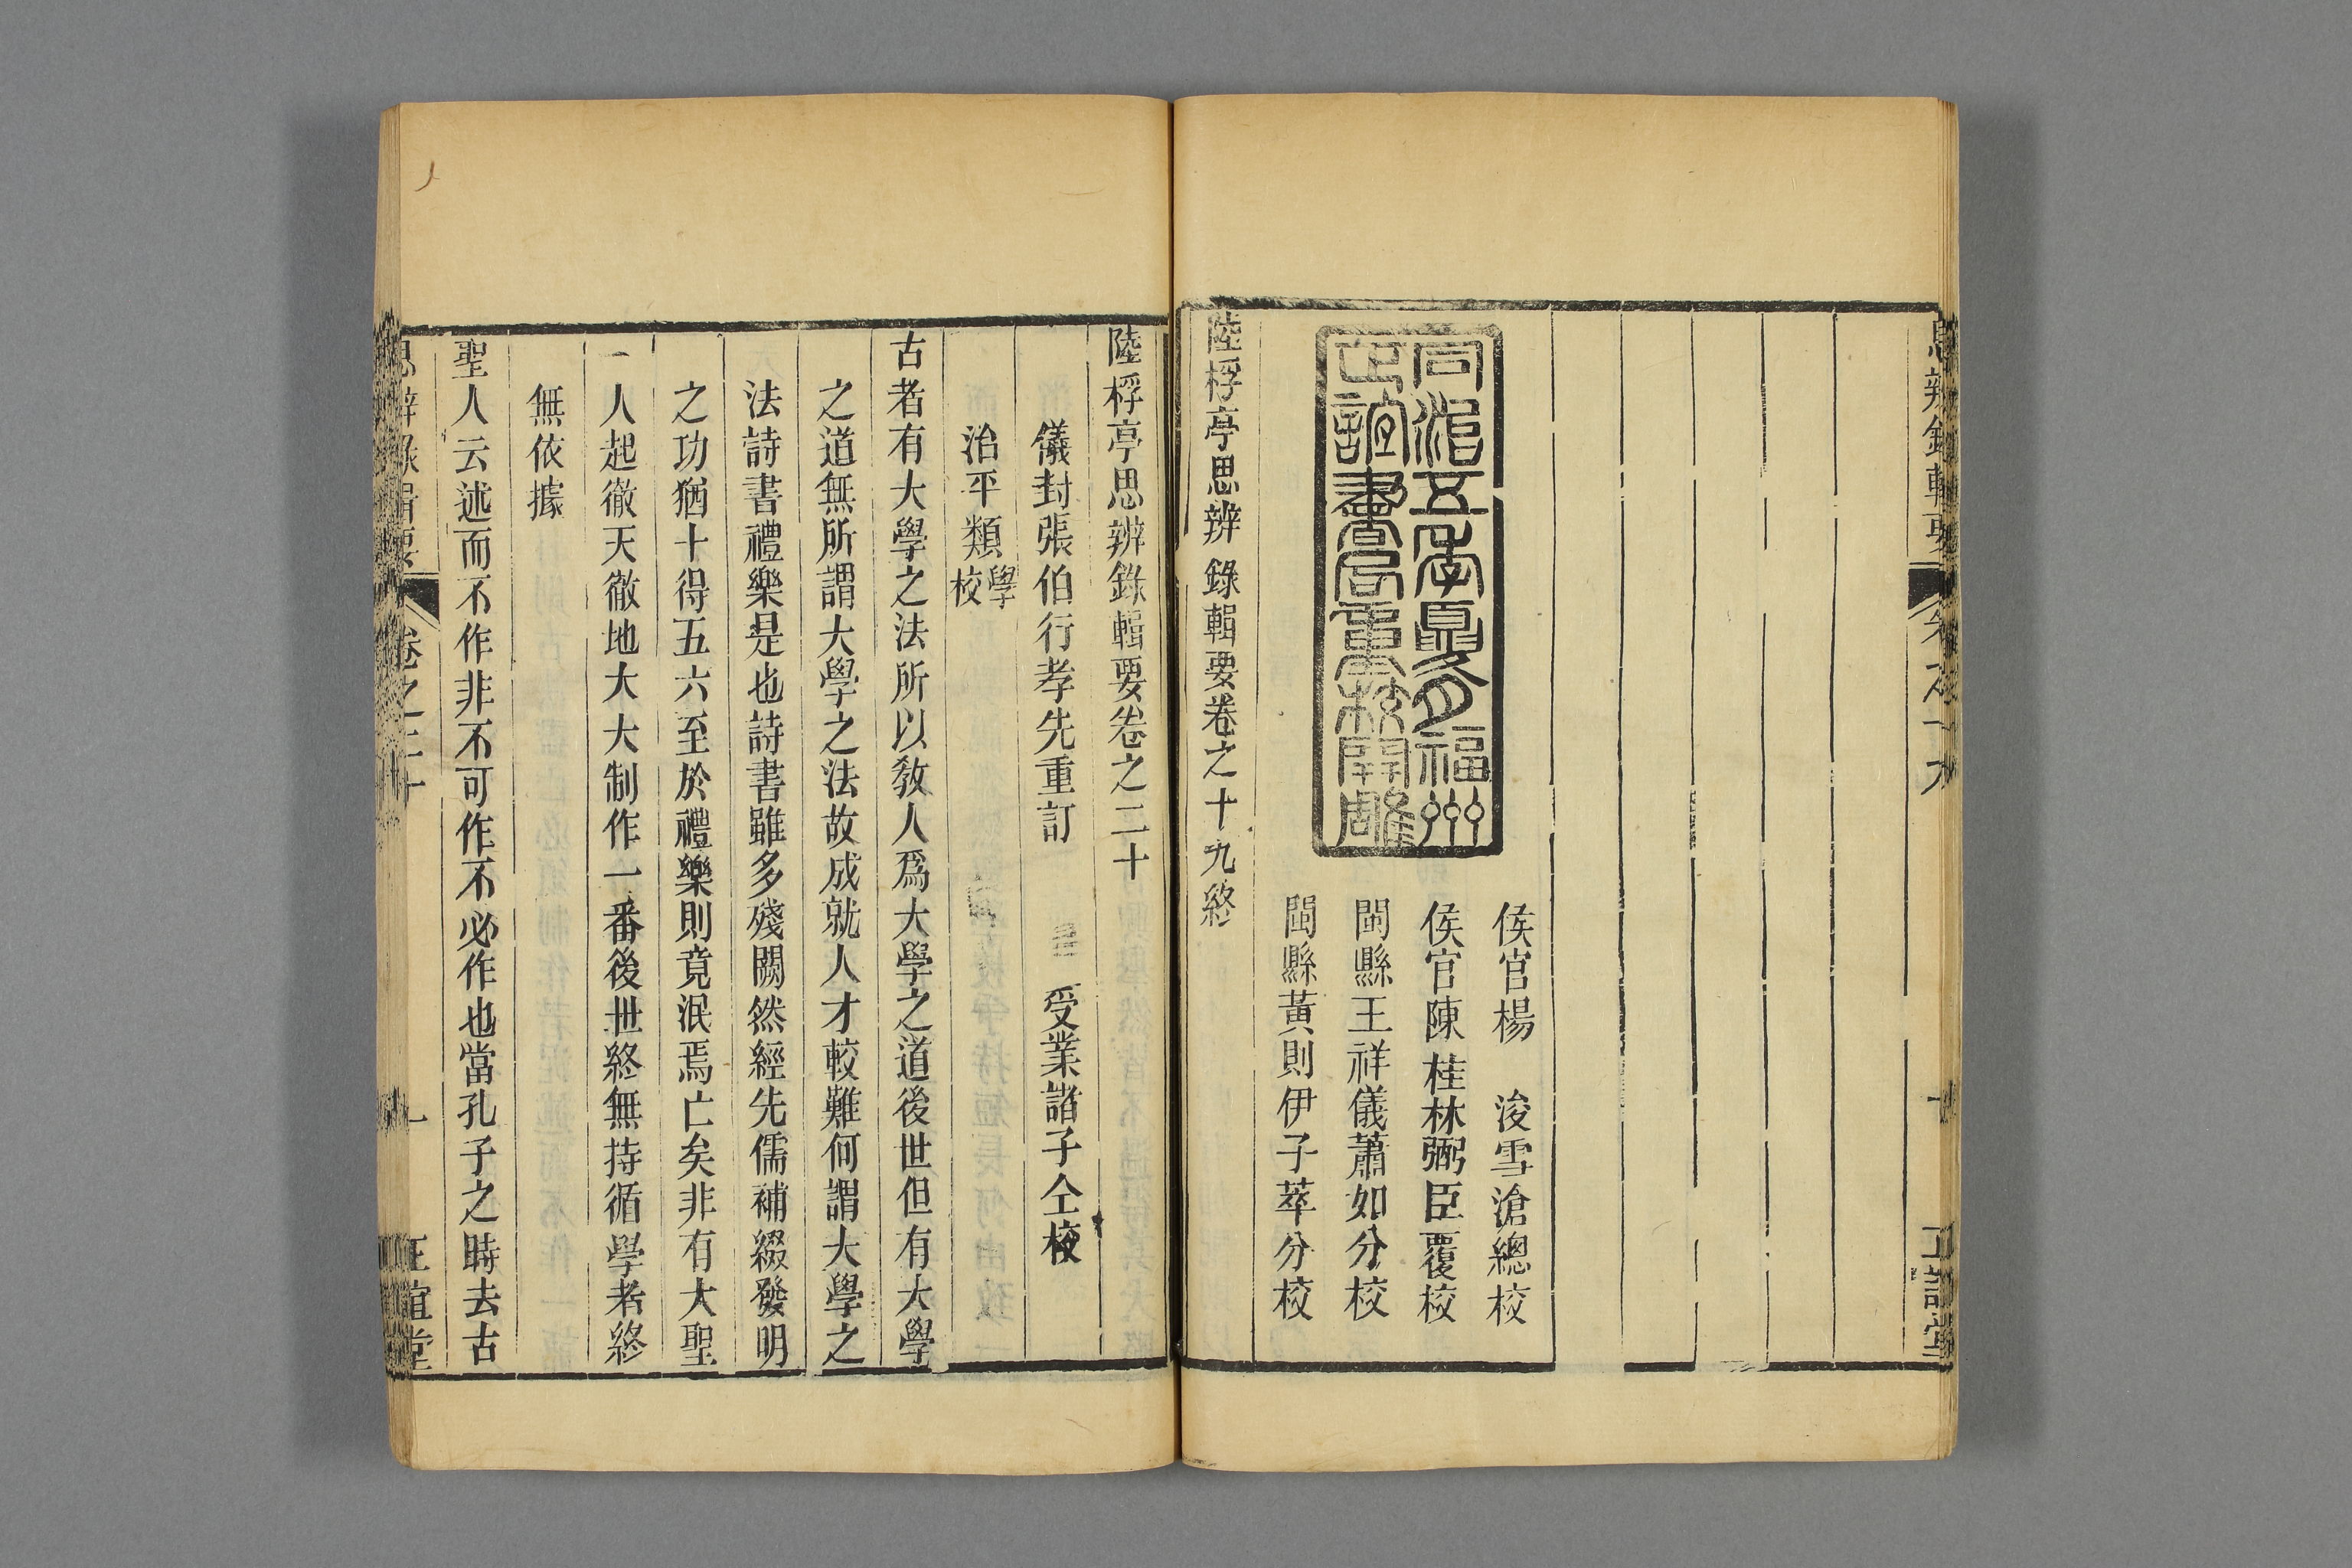 侯官楊　浚雪滄總校
侯官陳桂林弼臣覆校
閩縣王祥儀蕭如分校
閩縣黃則伊子萃分校
同治五年夏月福州
正誼書局重校開雕
陸桴亭思辨錄輯要卷之十九終
陸桴亭思辨錄輯要卷之二十
儀封張伯行孝先重訂　受業諸子仝校
治平類學校
古者有大學之法所以教人爲大學之道後世但有大學
之道無所謂大學之法故成就人才較難何謂大學之
法詩書禮樂是也詩書雖多殘闕然經先儒補綴發明
之功猶十得五六至於禮樂則竟泯焉亡矣非有大聖
一人起徹天徹地大大制作一番後世終無持循學者終
無依據
聖人云述而不作非不可作不必作也當孔子之時去古
思辨錄輯要　卷之二十　一　正誼堂